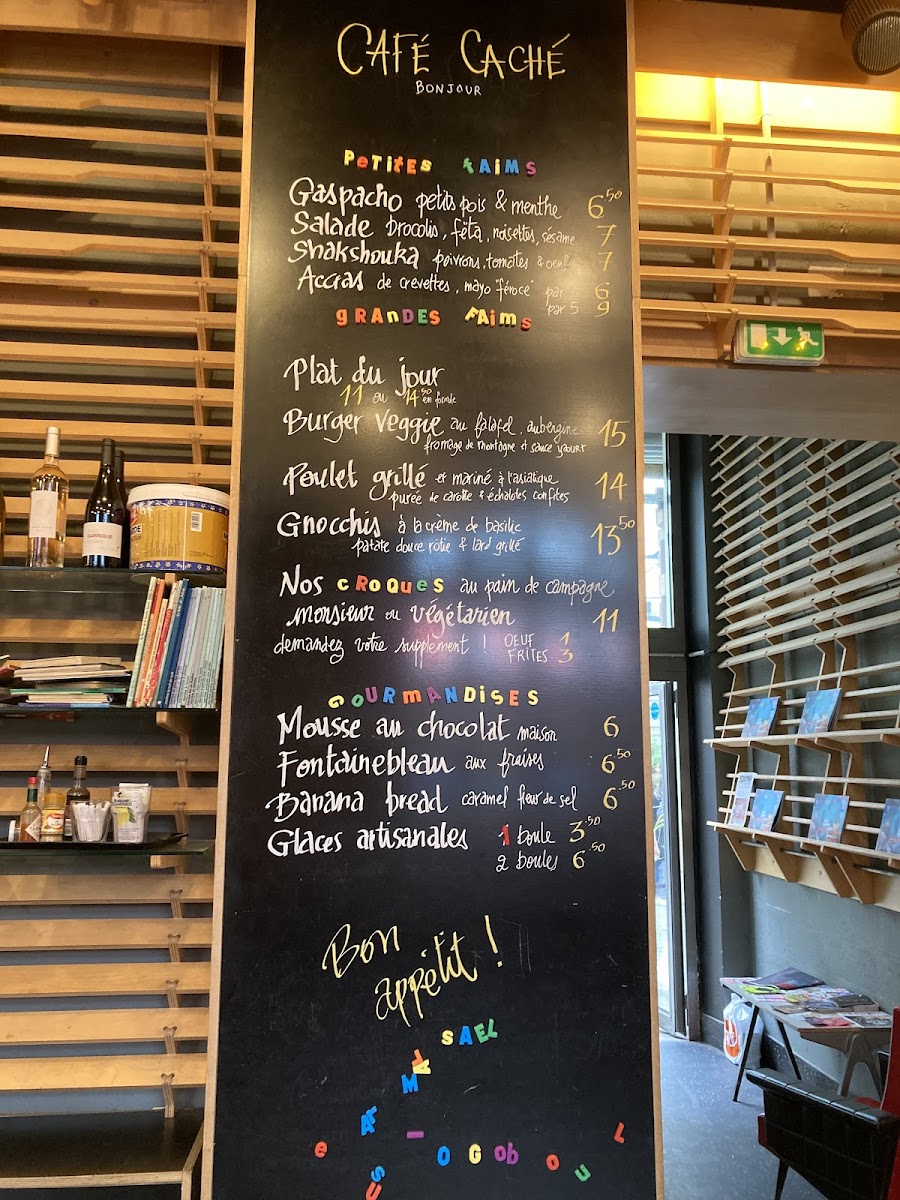 CAFÉ CACHÉ
BONJOUR
PETITES FAIMS
Gaspacho petits pois & menthe 6.50
Salade brocolis, fêta, noisettes, sésame 7
Shakshouka poivrons, tomates & oeufs 7
Accras de crevettes, mayo "féroce" par 6
par 5 9
GRANDES FAIMS
Plat du jour
11 ou 14.50 en formule
Burger veggie au falafel, aubergine 15
fromage de montagne et sauce yaourt
Poulet grillé et mariné à l'asiatique 14
purée de carotte & échalotes confites
Gnocchis à la crème de basilic 13.50
patate douce rôtie & lard grillé
Nos CROQUES au pain de campagne
monsieur ou végétarien 11
demandez votre supplément ! OEUF 1
FRITES 3
GOURMANDISES
Mousse au chocolat maison 6
Fontainebleau aux fraises 6.50
Banana bread caramel fleur de sel 6.50
Glaces artisanales 1 boule 3.50
2 boules 6.50
Bon
appétit !
SAEL
GARRIGUE